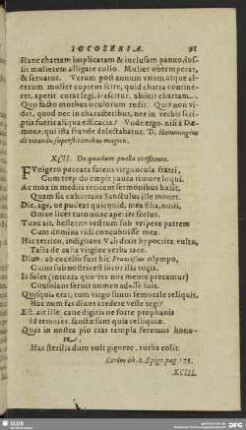 IOCOSERIA. 91
Hanc chartam implicatam & inclusam panno, iussit
mulierem alligare collo. Mulier obtemperat,
& seruatur. Verum post annum vnum atque alterum.
mulier cupiens scire, quid charta contineret.
aperit. cùm legit, irascitur. abiicit chartam.
Quo facto morbus oculorum redit. Quis non videt,
quod nec in characteribus, nec in verbis scriptis
fuerit aliqua efficacia? Vnde ergo nisi à Dæmone,
qui ista fraude delectabatur. D. Hemmingius
de vitandis superstitionibus magicis.
XCII. De quadam puella confitente.
FVnigero peccata fatens virguncula fratri,
Cum trep do emple pauca timore loqui.
Ac mox in mediis reticens sermonibus hæsit,
Quam sic exhortans Sanctulus ille monet.
Dic, age, ne pudeat quicquid, mea filia, nosti,
Omne licet tuto nunc aperire scelus.
Tunc ait, hesterno vestrum sub vespere patrem
Cum domina vidi concubuisse mea.
Hic tertio, indignans Vah dixit hypocrita vultu,
Talia de casta virgine verba iace.
Dium ab excelso fuit hic Franciscus olympo,
Cuius sub nostro est lecto illa toga.
Is solet (intenta quoties nos mente precamur)
Consolans seruis numen adesse suis.
Quisquis erat, tum virgo suum femorale reliquit,
Hac num fas diues credere veste tegi?
Est, ait ille, caue digitis ne forte prophanis
Id temeres. sanctæ sunt quia relliquiæ.
Quas in nostra pio cras templa feremus honore,
Has sterilis dum vult gignere, turba colit.
Cordus lib. 2. Epigr. pag. 178.
XCIII.
SLUB
DFG